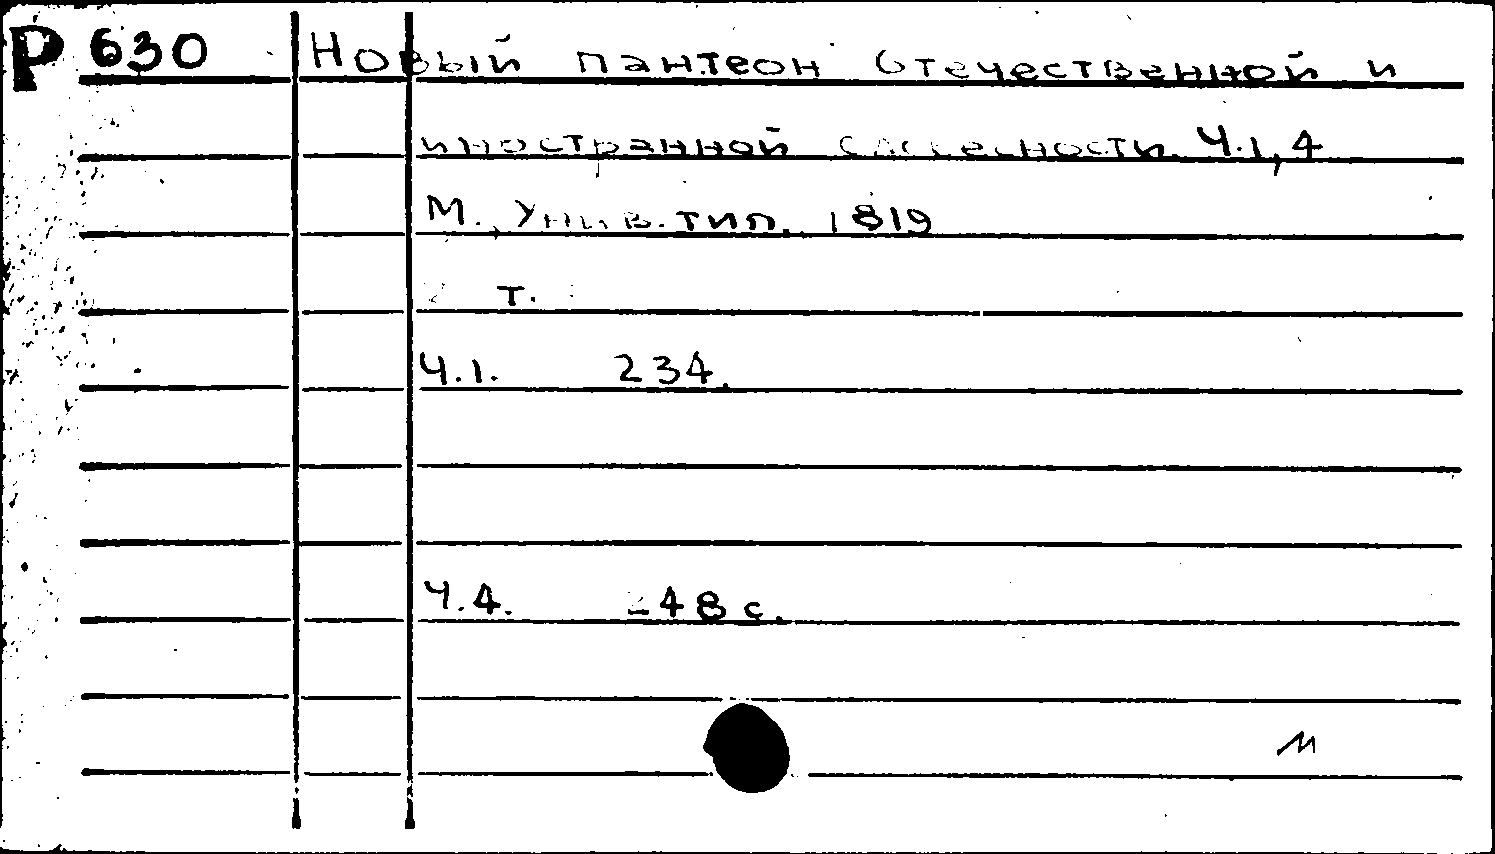 Р 630 Новый пантеон отечественной и
иностранной словесности. Ч.1, 4
М., Унив. тип., 1819
т.
Ч.1. 234.
Ч.4. 248 с.
м